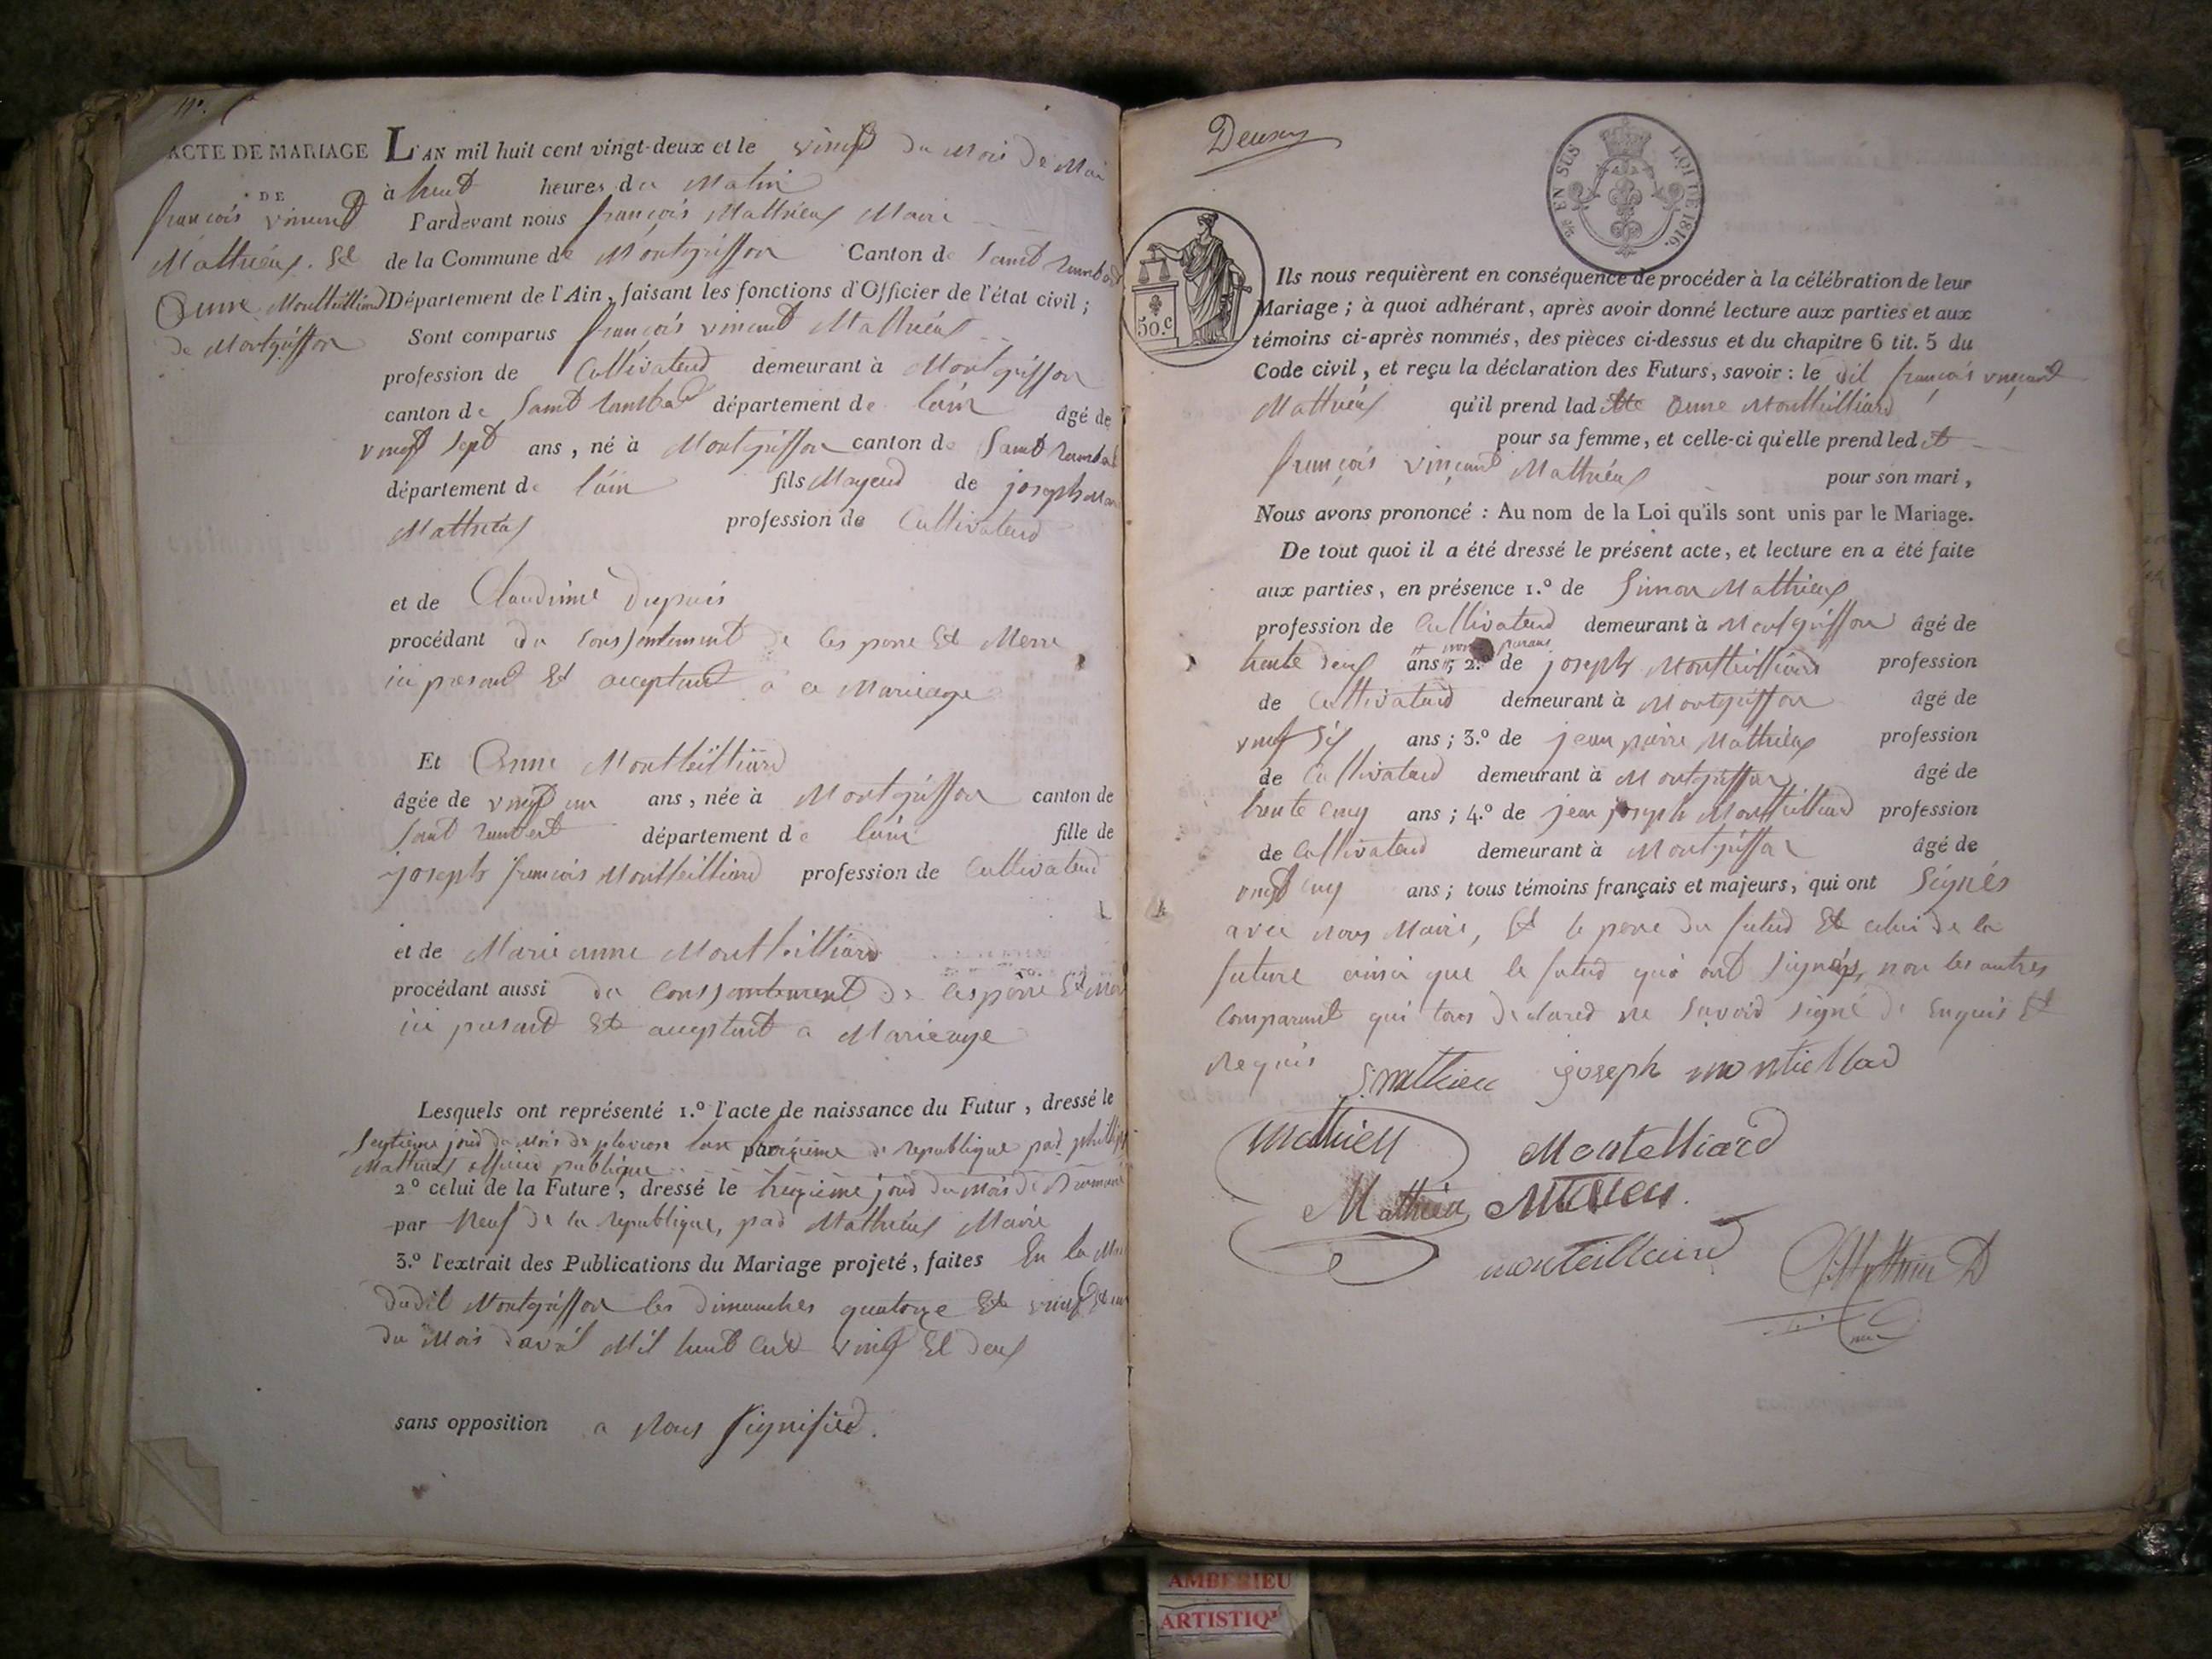 ACTE DE MARIAGE
DE
françois vincent
Mathieux. Et
Anne Montteilliard
de Montgriffon
L'AN mil huit cent vingt-deux et le vingt du mois de Mai
à huit heures du Matin
Pardevant nous françois Mathieux Maire
de la Commune de Montgriffon Canton de Saint Rambert
Département de l'Ain, faisant les fonctions d'Officier de l'état civil ;
Sont comparus françois vincent Mathieux
profession de Cultivateur demeurant à Montgriffon
canton de Saint Rambert département de l'ain âgé de
vingt sept ans, né à Montgriffon canton de Saint Rambert
département de l'ain fils Majeur de joseph Marie
Mathieux profession de Cultivateur
et de Claudine Dupuis
procédant du Conssentement de ces perre Et Merre
ici present Et acceptant à ce Marieage
Et Anne Montteilliard
âgée de vingt un ans, née à Montgriffon canton de
Saint Rambert département de l'ain fille de
joseph françois Montteilliard profession de Cultivateur
et de Marie anne Montteilliard
procédant aussi du Conssentement de ces perre Et Mer
ici present Et acceptant a Marieage
Lesquels ont représenté 1.º l'acte de naissance du Futur, dressé le
Septième jour du Mois de pluviose l'an troizieme de republique par philippe
Mathieux officier publique
2º celui de la Future, dressé le treizieme jour du Mois de
par Neuf de la republique, par Mathieux Maire
3.º l'extrait des Publications du Mariage projeté, faites En la Mai
dudit Montgriffon les dimanches quatorze Et vingt Et un
du Mois d'avril Mil huit Cent vingt Et deux
sans opposition a Nous Signifier.
Deuxx
EN SUS LOI DE 1816.
50.c
Ils nous requièrent en conséquence de procéder à la célébration de leur
Mariage ; à quoi adhérant, après avoir donné lecture aux parties et aux
témoins ci-après nommés, des pièces ci-dessus et du chapitre 6 tit. 5 du
Code civil, et reçu la déclaration des Futurs, savoir : le dit françois vinçant
Mathieux qu'il prend ladite Anne Montteilliard
pour sa femme, et celle-ci qu'elle prend ledit
françois vinçant Mathieux pour son mari,
Nous avons prononcé : Au nom de la Loi qu'ils sont unis par le Mariage.
De tout quoi il a été dressé le présent acte, et lecture en a été faite
aux parties, en présence 1.º de Simon Mathieux
profession de Cultivateur demeurant à Montgriffon âgé de
trente deux ans ; 2.º de joseph Montteilliard profession
de Cultivateur demeurant à Montgriffon âgé de
vingt Six ans ; 3.º de jean pierre Mathieux profession
de Cultivateur demeurant à Montgriffon âgé de
trente Cinq ans ; 4.º de jean joseph Montteilliard profession
de Cultivateur demeurant à Montgriffon âgé de
vingt Cinq ans ; tous témoins français et majeurs, qui ont Signés
avec Nous Maire, Et le perre du futur Et celui de la
future ainsi que le futur qui ont Signés, non les autres
Comparant qui ont déclaré ne Savoir signé de Enquis Et
Requis
S. mathieu joseph montiellard
mathieu Montelliard
Mathieu Mathieu
monteilliard